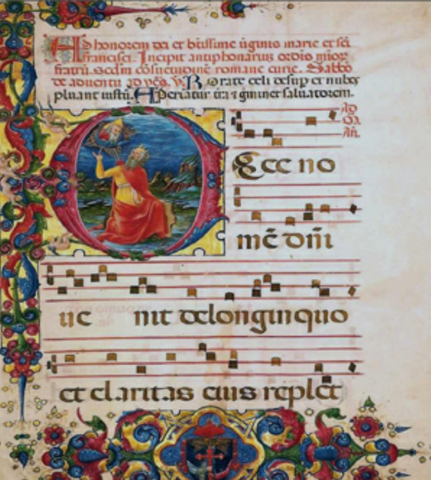 Ad honorem dei et btissime ũginis marie et sci
francisci. Incipit antiphonarius ordis minor
fratrũ. scdm cõsuetudinẽ romane curie. Sabbo
de aduentu ad ỹs. ℣. Rorate celi desup et nubes
pluant iustũ. ℟ Aperiatur tra ⁊ gminet saluatorem.
AD
añ.
Ecce no
mẽ dñi
ue nit delonginquo
et claritas eius replet